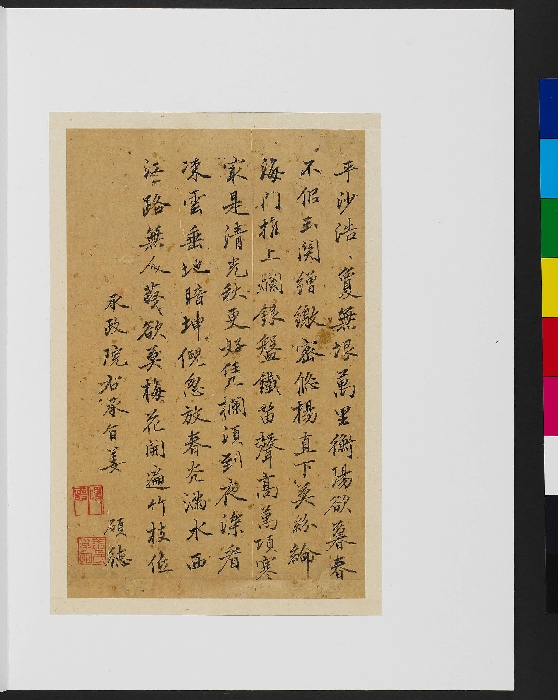 平沙浩〻夐無垠萬里衡陽欲暮春
不但玉関繒繳密修楊直下莫紛綸
海門推上爛銀盤鐵笛聲高萬頃寒
㝡是清光秋更好凭欄須到夜深看
凍雲垂地暗坤倪忽放春光滿水西
江路無人欲莫梅花開遍竹枝低
承政院右承旨姜
碩德